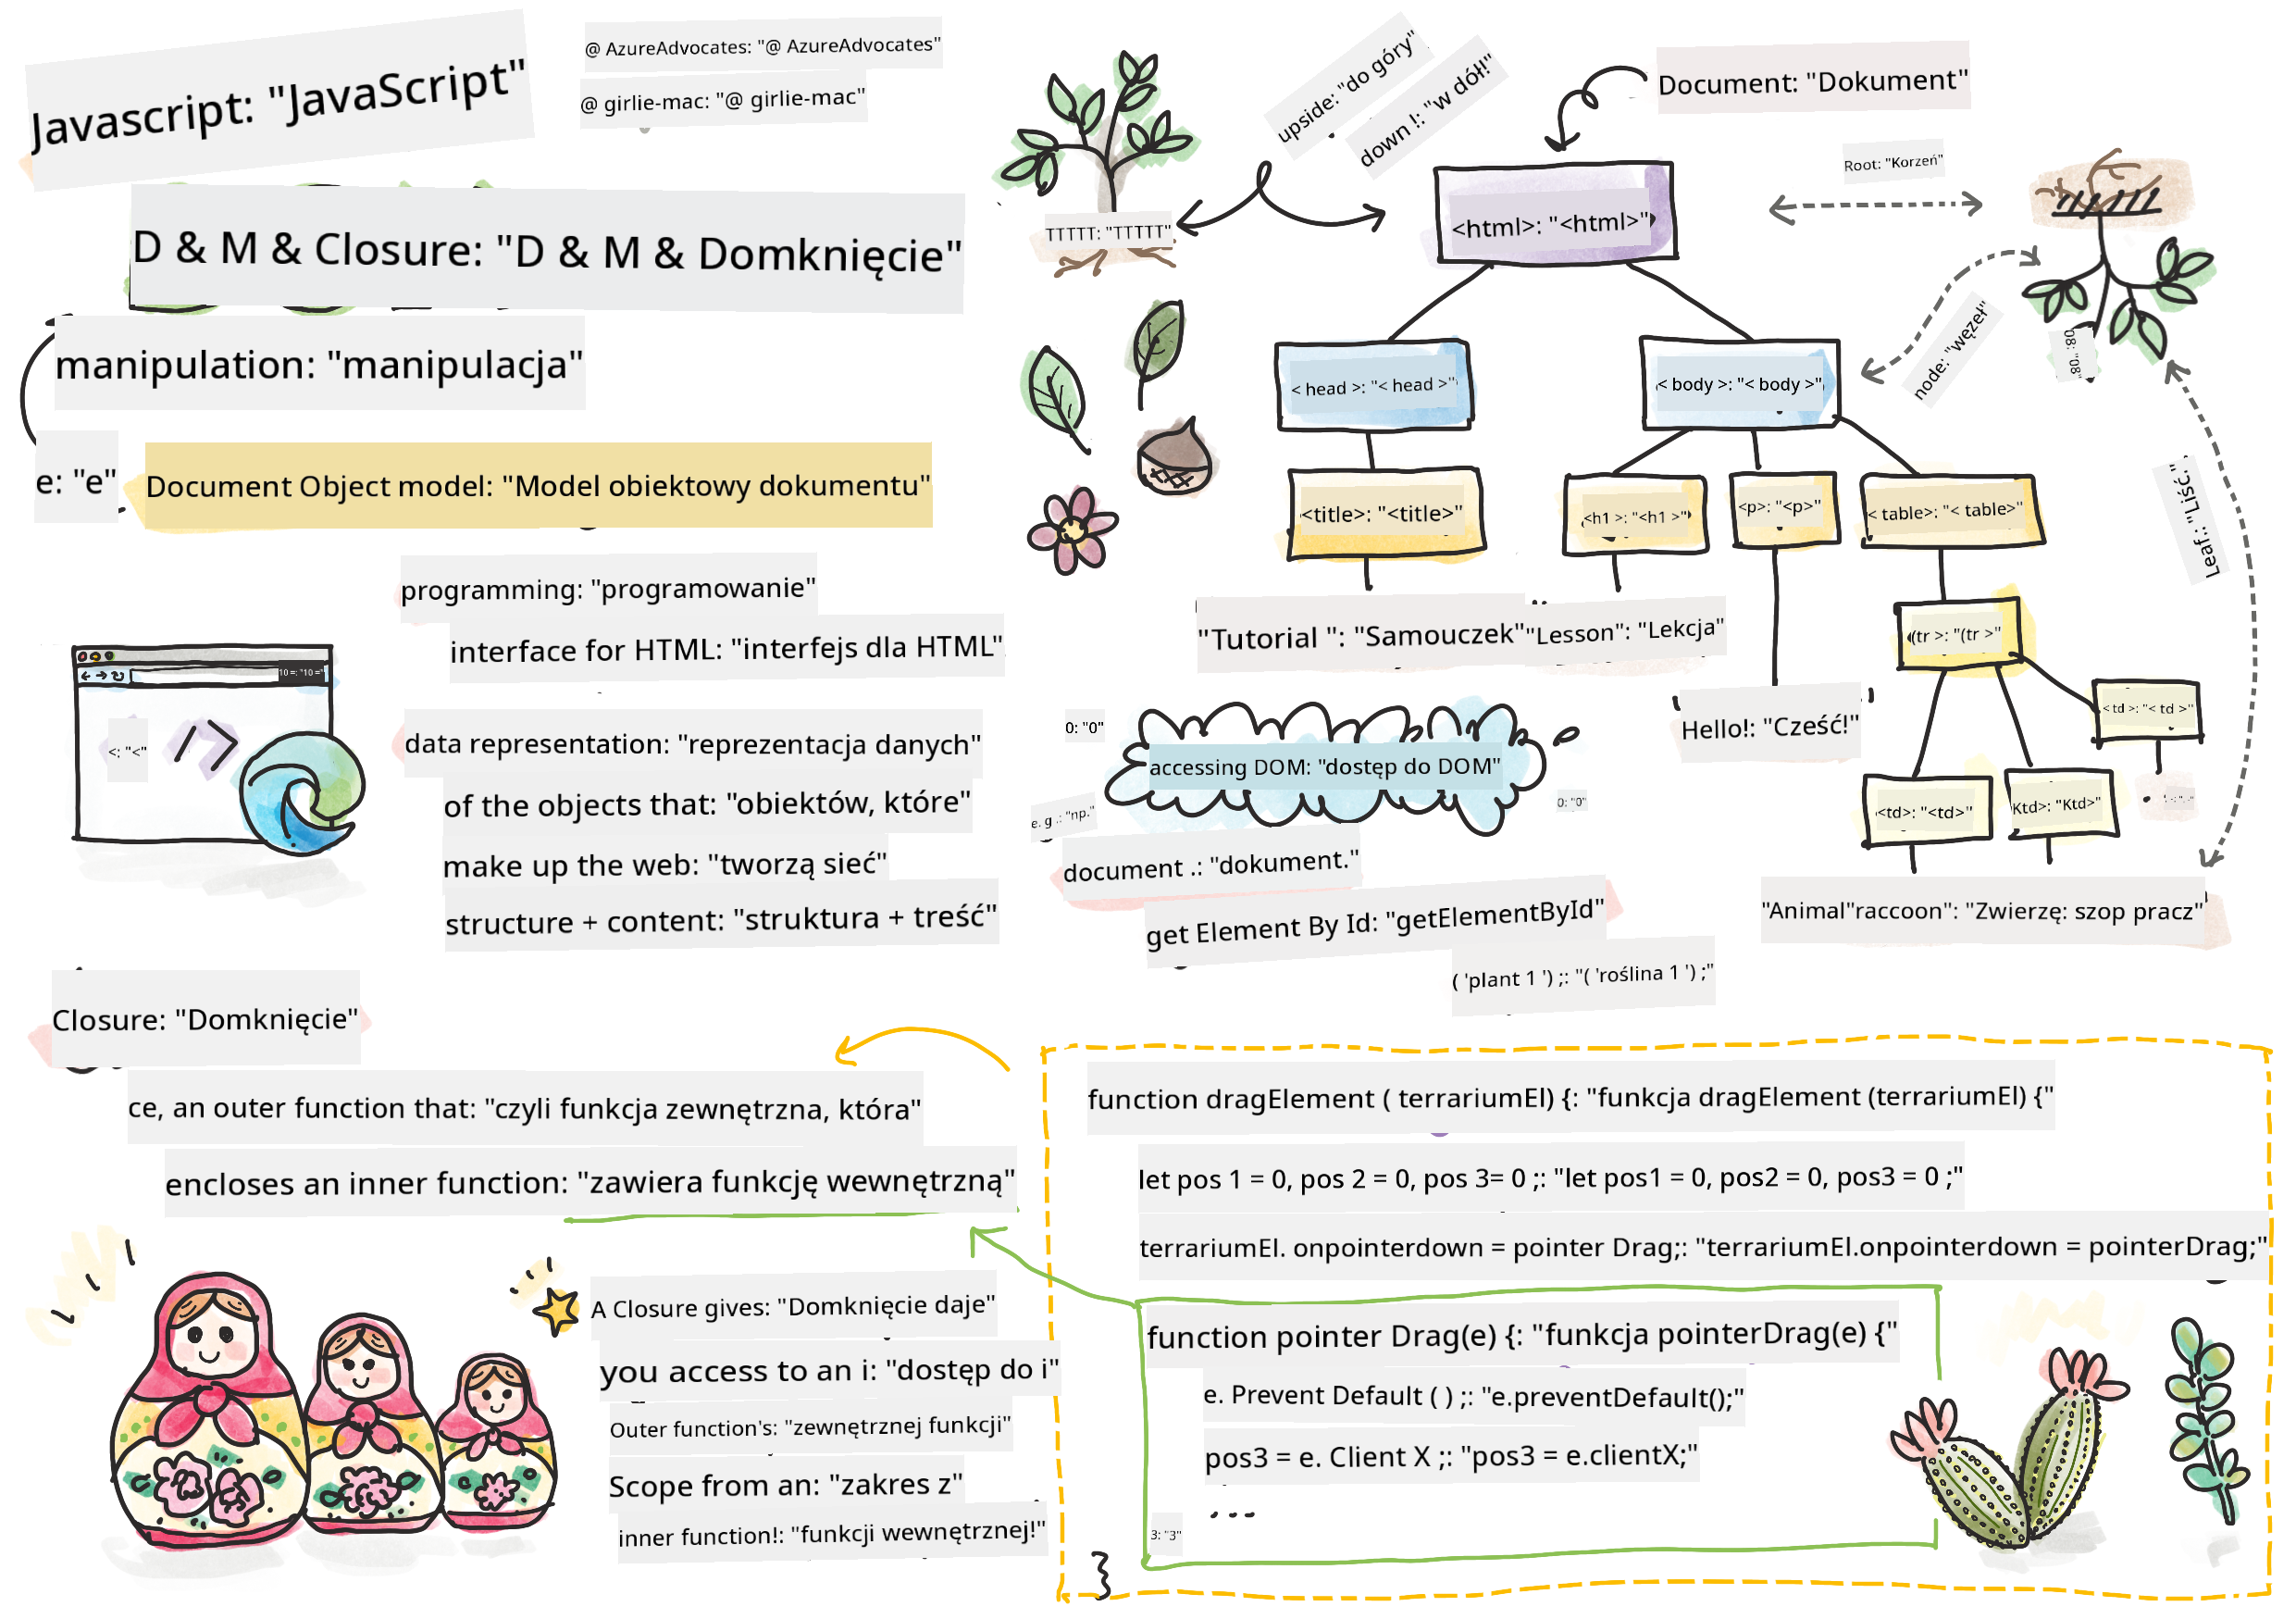 Javascript: "JavaScript"
@ AzureAdvocates: "@ AzureAdvocates"
@ girlie-mac: "@ girlie-mac"
D & M & Closure: "D & M & Domknięcie"
manipulation: "manipulacja"
e: "e"
Document Object model: "Model obiektowy dokumentu"
programming: "programowanie"
interface for HTML: "interfejs dla HTML"
10 =: "10 ="
<: "<"
/>
data representation: "reprezentacja danych"
of the objects that: "obiektów, które"
make up the web: "tworzą sieć"
structure + content: "struktura + treść"
upside: "do góry"
down !: "w dół!"
Document: "Dokument"
TTTTT: "TTTTT"
<html>: "<html>"
Root: "Korzeń"
node: "węzeł"
08: "08"
Leaf.: "Liść."
< head >: "< head >"
< body >: "< body >"
<title>: "<title>"
<h1 >: "<h1 >"
<p>: "<p>"
< table>: "< table>"
"Tutorial ": "Samouczek"
"Lesson": "Lekcja"
(tr >: "(tr >"
Hello!: "Cześć!"
< td >: "< td >"
<td>: "<td>"
Ktd>: "Ktd>"
"Animal"raccoon": "Zwierzę: szop pracz"
0: "0"
accessing DOM: "dostęp do DOM"
0: "0"
e. g .: "np."
document .: "dokument."
get Element By Id: "getElementById"
( 'plant 1 ') ;: "( 'roślina 1 ') ;"
Closure: "Domknięcie"
ce, an outer function that: "czyli funkcja zewnętrzna, która"
encloses an inner function: "zawiera funkcję wewnętrzną"
A Closure gives: "Domknięcie daje"
you access to an i: "dostęp do i"
Outer function's: "zewnętrznej funkcji"
Scope from an: "zakres z"
inner function!: "funkcji wewnętrznej!"
function dragElement ( terrariumEl) {: "funkcja dragElement (terrariumEl) {"
let pos 1 = 0, pos 2 = 0, pos 3= 0 ;: "let pos1 = 0, pos2 = 0, pos3 = 0 ;"
terrariumEl. onpointerdown = pointer Drag;: "terrariumEl.onpointerdown = pointerDrag;"
function pointer Drag(e) {: "funkcja pointerDrag(e) {"
e. Prevent Default ( ) ;: "e.preventDefault();"
pos3 = e. Client X ;: "pos3 = e.clientX;"
...
3: "3"
}